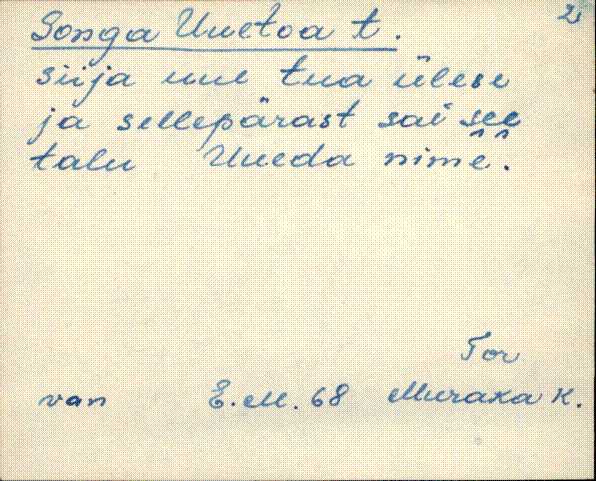 2
Songa Uuetoa t.
siija uue tua ülese
ja sellepärast sai see
talu Uueda nimê̂.
Tor
van E.M. 68 Muraka K.